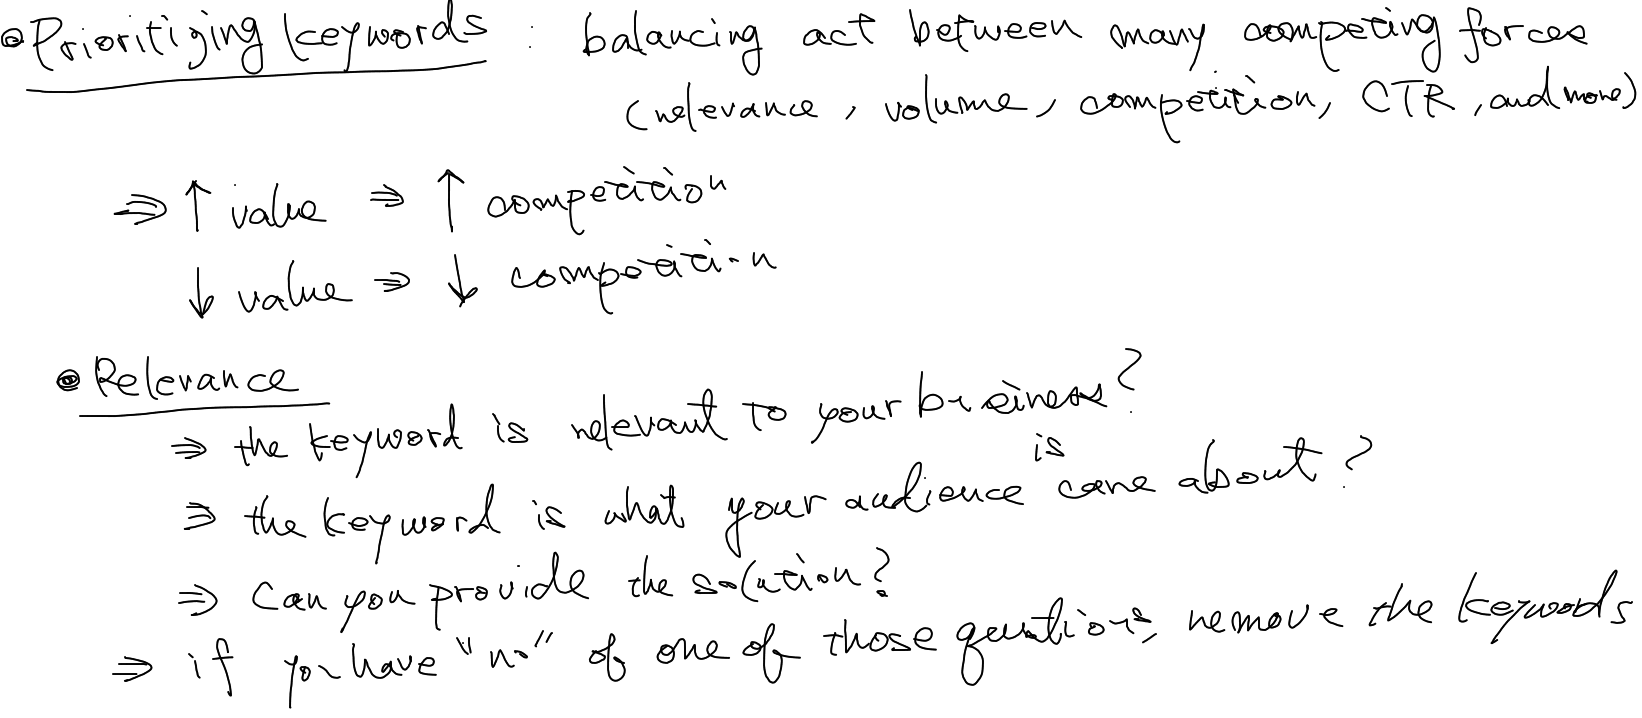 Prioritizing keywords : balancing act between many competing forces
(relevance, volume, competition, CTR, and more)
⇒ ↑ value ⇒ ↑ competition
↓ value ⇒ ↓ competition
Relevance
⇒ the keyword is relevant to your business?
⇒ the keyword is what your audience is care about?
⇒ Can you provide the solution?
⇒ if you have "no" of one of those questions, remove the keywords